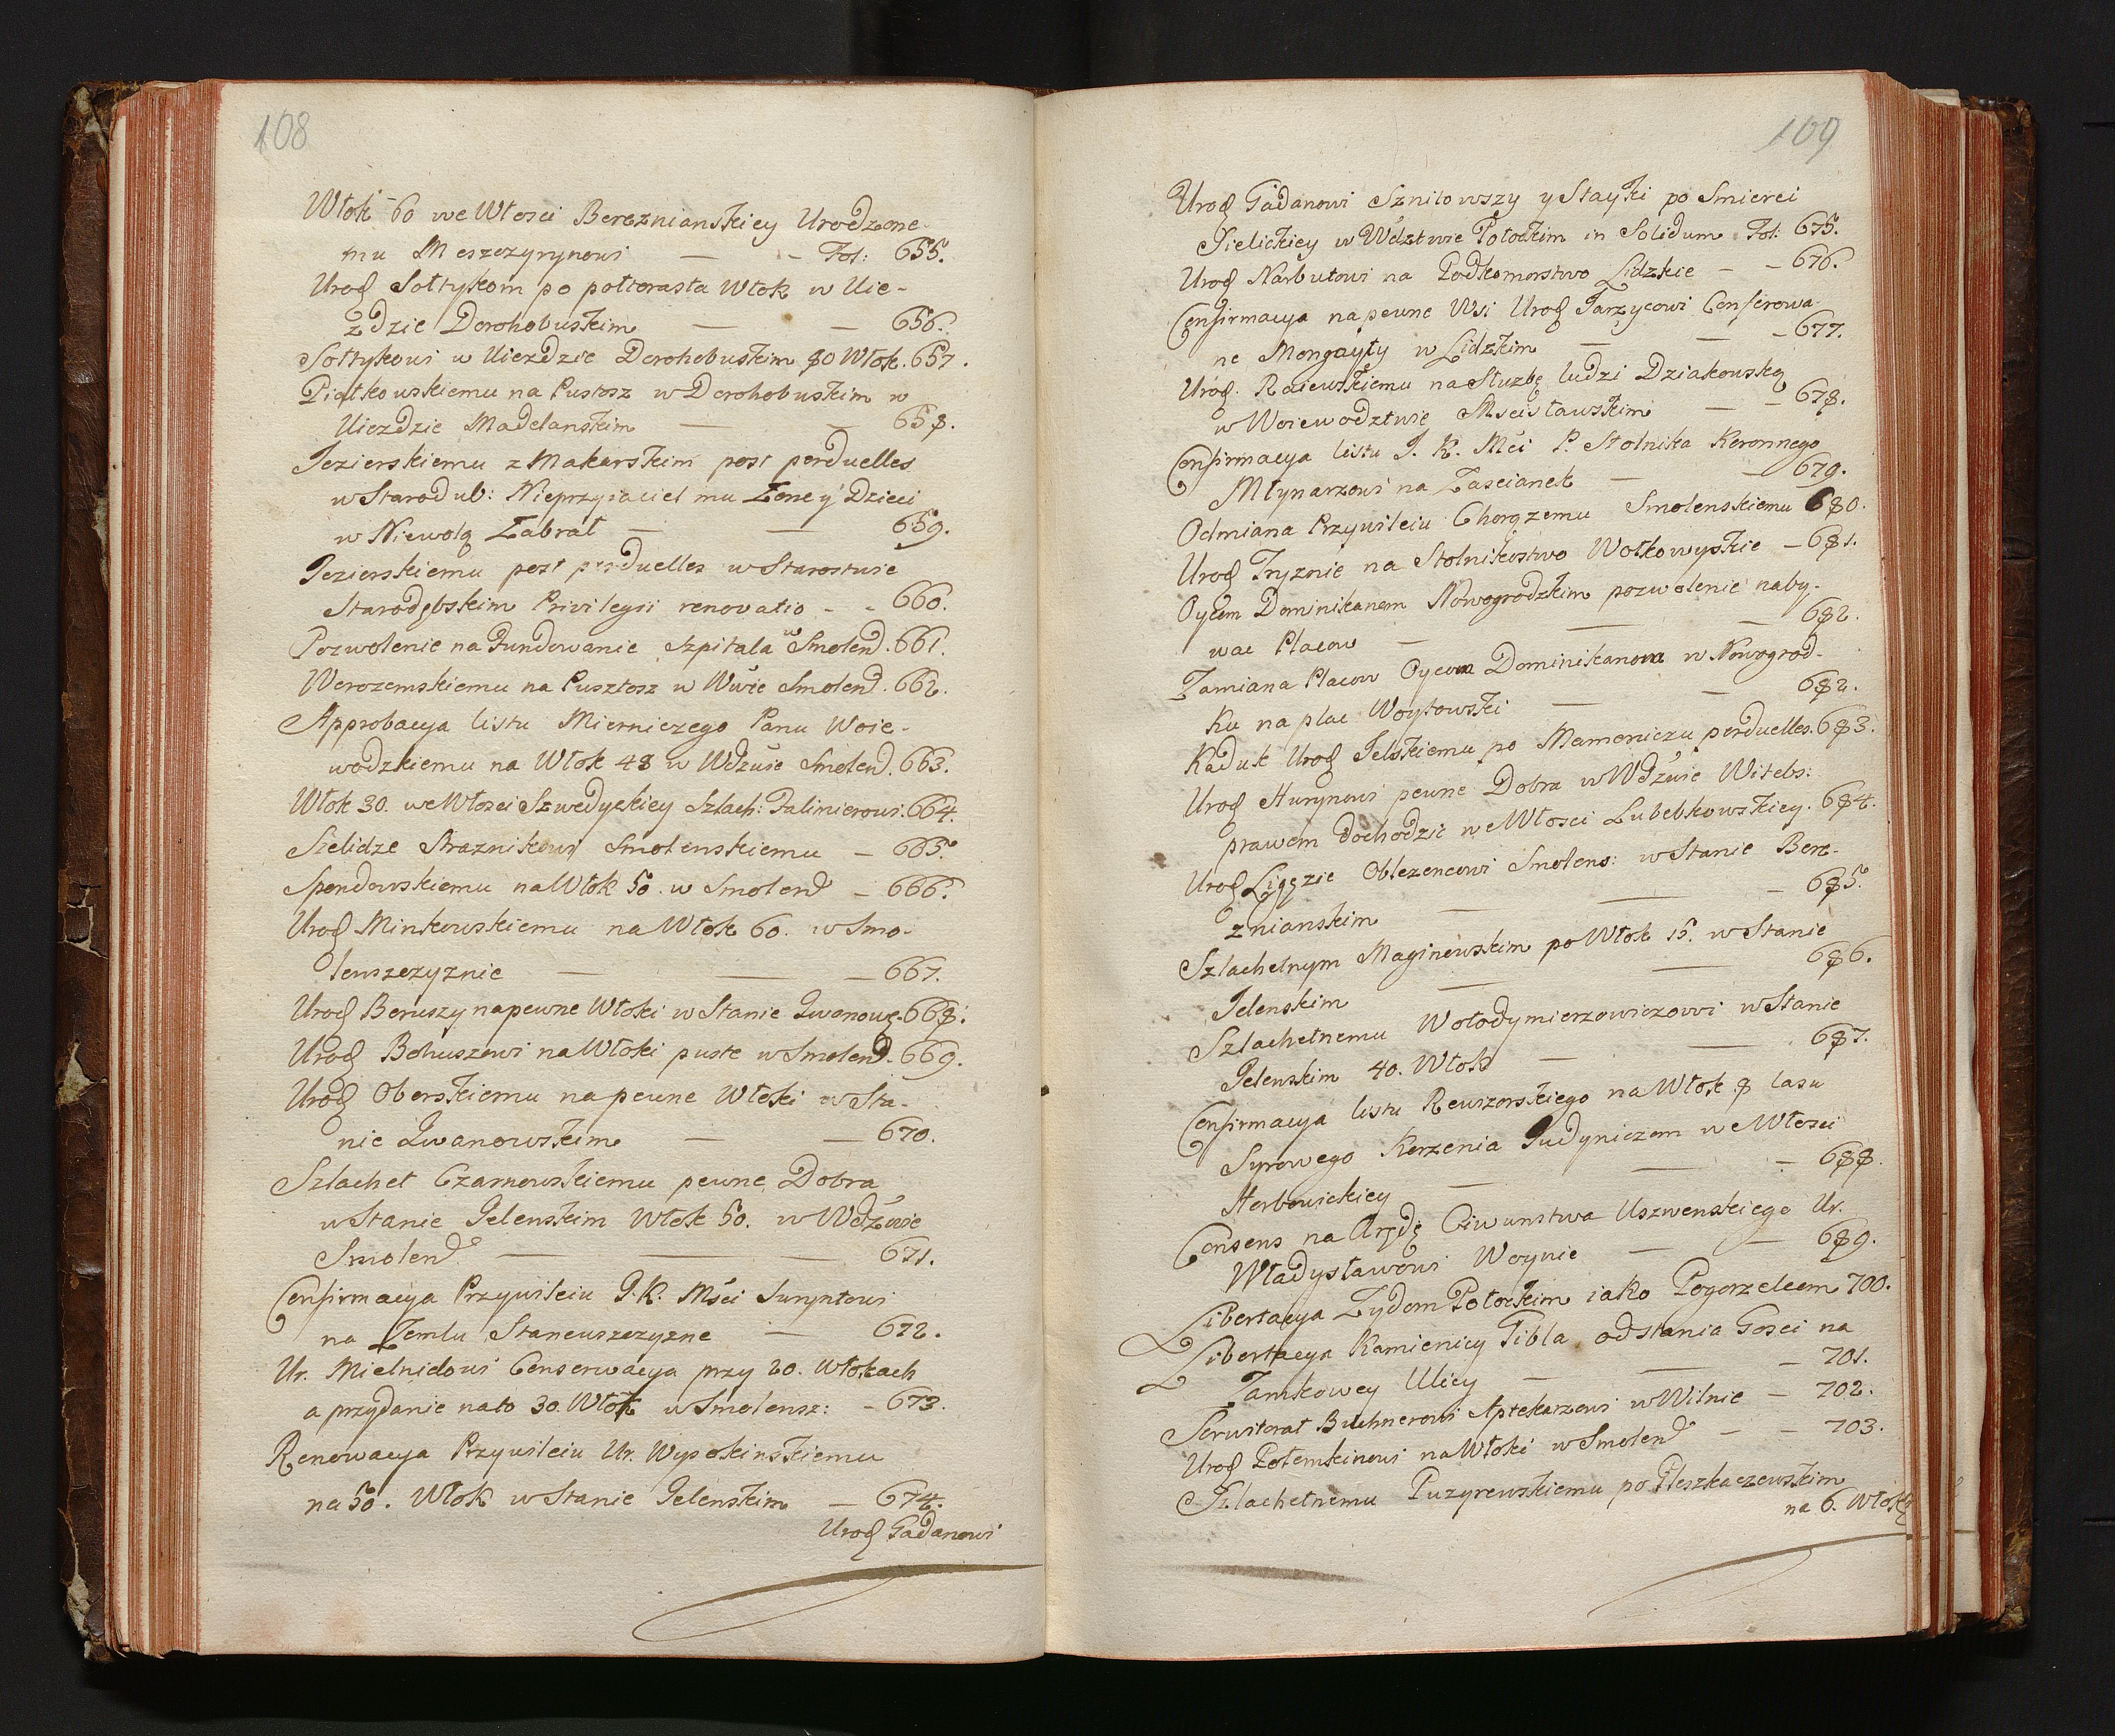 108
Włok 60 we Włosci Bereznianskiey Urodzone-
mu Meszczyrynowi — - Fol: 655.
Urodz Sołtykom po połtorasta Włok w Uie-
zdzie Dorohobuskim — — 656.
Sołtykowi w Uiezdzie Dorohobuskim 80 Włok. 657.
Piątkowskiemu na Pustosz w Dorohobuskim w
Uiezdzie Madelanskim — — 658.
Jezierskiemu z Makarskim post perduelles
w Starodub: Nieprzyiaciel mu Zonę y Dzieci
w Niewolą Zabrał — — 659.
Jezierskiemu post perduelles w Starostwie
Starodębskim Privilegii renovatio - - 660.
Pozwolenie na Fundowanie Szpitala w Smolend. 661.
Werozemskiemu na Pusztosz w Wwie Smolend. 662.
Approbacya listu Mierniczego Panu Woie-
wodzkiemu na Włok 48 w Wdzwie Smolend. 663.
Włok 30. we Włosci Szwedyckiey Szlach: Palinierowi. 664.
Sielidze Straznikowi Smolenskiemu — 665.
Spendowskiemu na Włok 50. w Smolend — 666.
Urodz Minkowskiemu na Włok 60. w Smo-
lenszczyznie — — — 667.
Urodz Boruszy na pewne Włoki w Stanie Iwanows. 668.
Urodz Bohuszowi na Włoki puste w Smolend. 669.
Urodz Oborskiemu na pewne Włoki w Sta-
nie Iwanowskim — — 670.
Szlachet Czarnowskiemu pewne Dobra
w Stanie Jelenskim Włok 50. w Wdzwie
Smolend — — — 671.
Confirmacya Przywileiu J. K. Msci Suryntowi
na Zemlu Stancuszczyzne — 672.
Ur. Mielnidowi Conserwacya przy 20. Włokach
a przydanie na to 30. Włok w Smolensz: - 673.
Renowacya Przywileiu Ur. Wypokinskiemu
na 50. Włok w Stanie Jelenskim — 674.
Urodz Gadanowi
109
Urodz Gadanowi Sznitowszy y Stayki po Smierci
Sielickiey w Wdztwie Połockim in Solidum Fol: 675.
Urodz Narbutowi na Podkomorstwo Lidzkie - - 676.
Confirmacya na pewne Wsi Urodz Jarzycowi Conferowa-
ne Mongayty w Lidzkim — — - 677.
Urodz. Raiewskiemu na Służbę ludzi Dziakouską
w Woiewodztwie Mscisławskim — - 678.
Confirmacya listu J. K. Mci P. Stolnika Koronnego
Młynarzowi na Zascianek — — 679.
Odmiana Przywileiu Chorązemu Smolenskiemu 680.
Urodz Tryznie na Stolnikostwo Wołkowyskie - 681.
Oycom Dominikanom Nowogrodzkim pozwolenie naby-
wac Placow — — — 682.
Zamiana Placow Oycom Dominikanom w Nowogrod-
ku na plac Woytowski — — 682.
Kaduk Urodz Jelskiemu po Mamoniczu perduelles. 683.
Urodz Hurynowi pewne Dobra w Wdzwie Witebs:
prawem dochodzic we Włosci Lubebkowskiey. 684.
Urodz Ligęzie Oblezencowi Smolens: w Stanie Bere-
znianskim — — — 685.
Szlachetnym Maginowskim po Włok 15. w Stanie
Jelenskim — — 686.
Szlachetnemu Wołodymierzowiczowi w Stanie
Jelenskim 40. Włok — — 687.
Confirmacya listu Rewizorskiego na Włok 8 lasu
Syrowego Korzenia Gudyniczom we Włosci
Horbowickiey — — - 688.
Consens na Arędę Ciwunstwa Uszwenskiego Ur.
Władysławowi Woynie — — 689.
Libertacya Zydom Połockim iako Pogorzelcom 700.
Libertacya Kamienicy Tibla od stania Gosci na
Zamkowey Ulicy — — - 701.
Serwitorat Buchnerowi Aptekarzowi w Wilnie - 702.
Urodz Potemkinowi na Włoki w Smolend - - 703.
Szlachetnemu Puzyrewskiemu po Pleszkaczewskim
na 6. Włoky